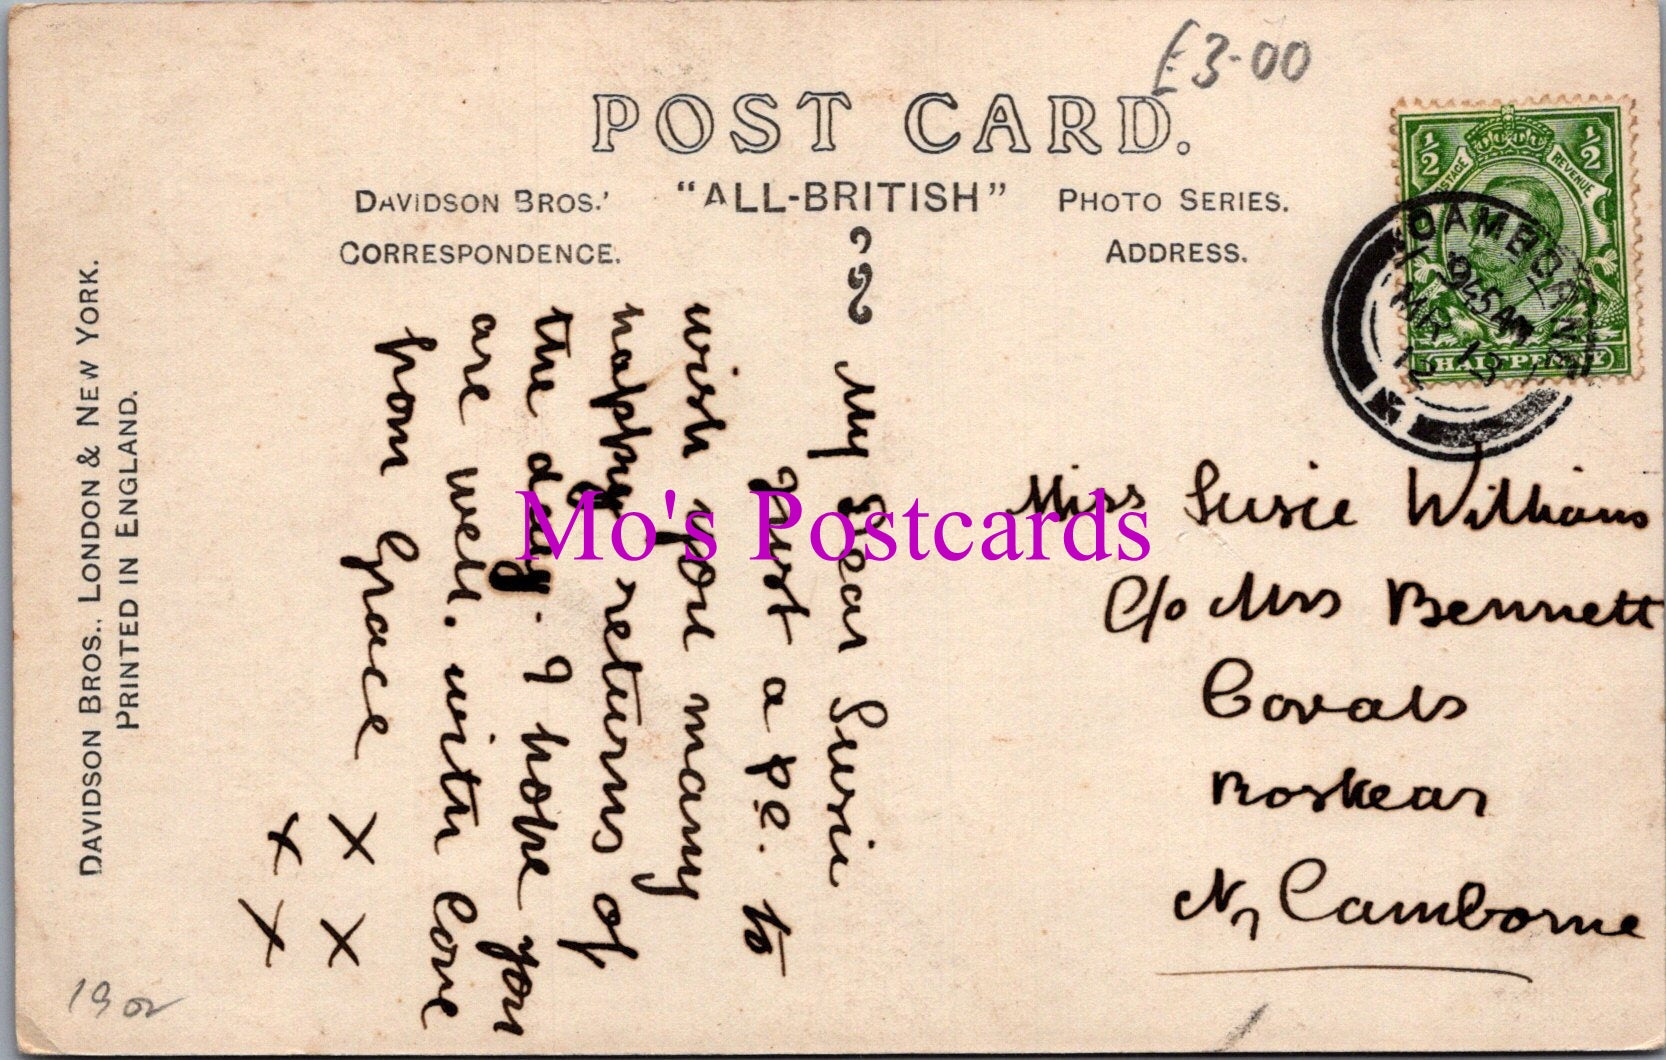 £3-00
POST CARD.
DAVIDSON BROS.' "ALL-BRITISH" PHOTO SERIES.
CORRESPONDENCE. ADDRESS.
½ ½
POSTAGE REVENUE
HALFPENNY
CAMBORNE
945AM
MR 13
12
My Dear Susie
Just a P.C. to
wish you many
happy returns of
the day. I hope you
are well. with love
from Grace
X X
X X
Miss Susie Williams
C/o Mrs Bennett
Roskear
Nr Camborne
DAVIDSON BROS., LONDON & NEW YORK.
PRINTED IN ENGLAND.
Mo's Postcards